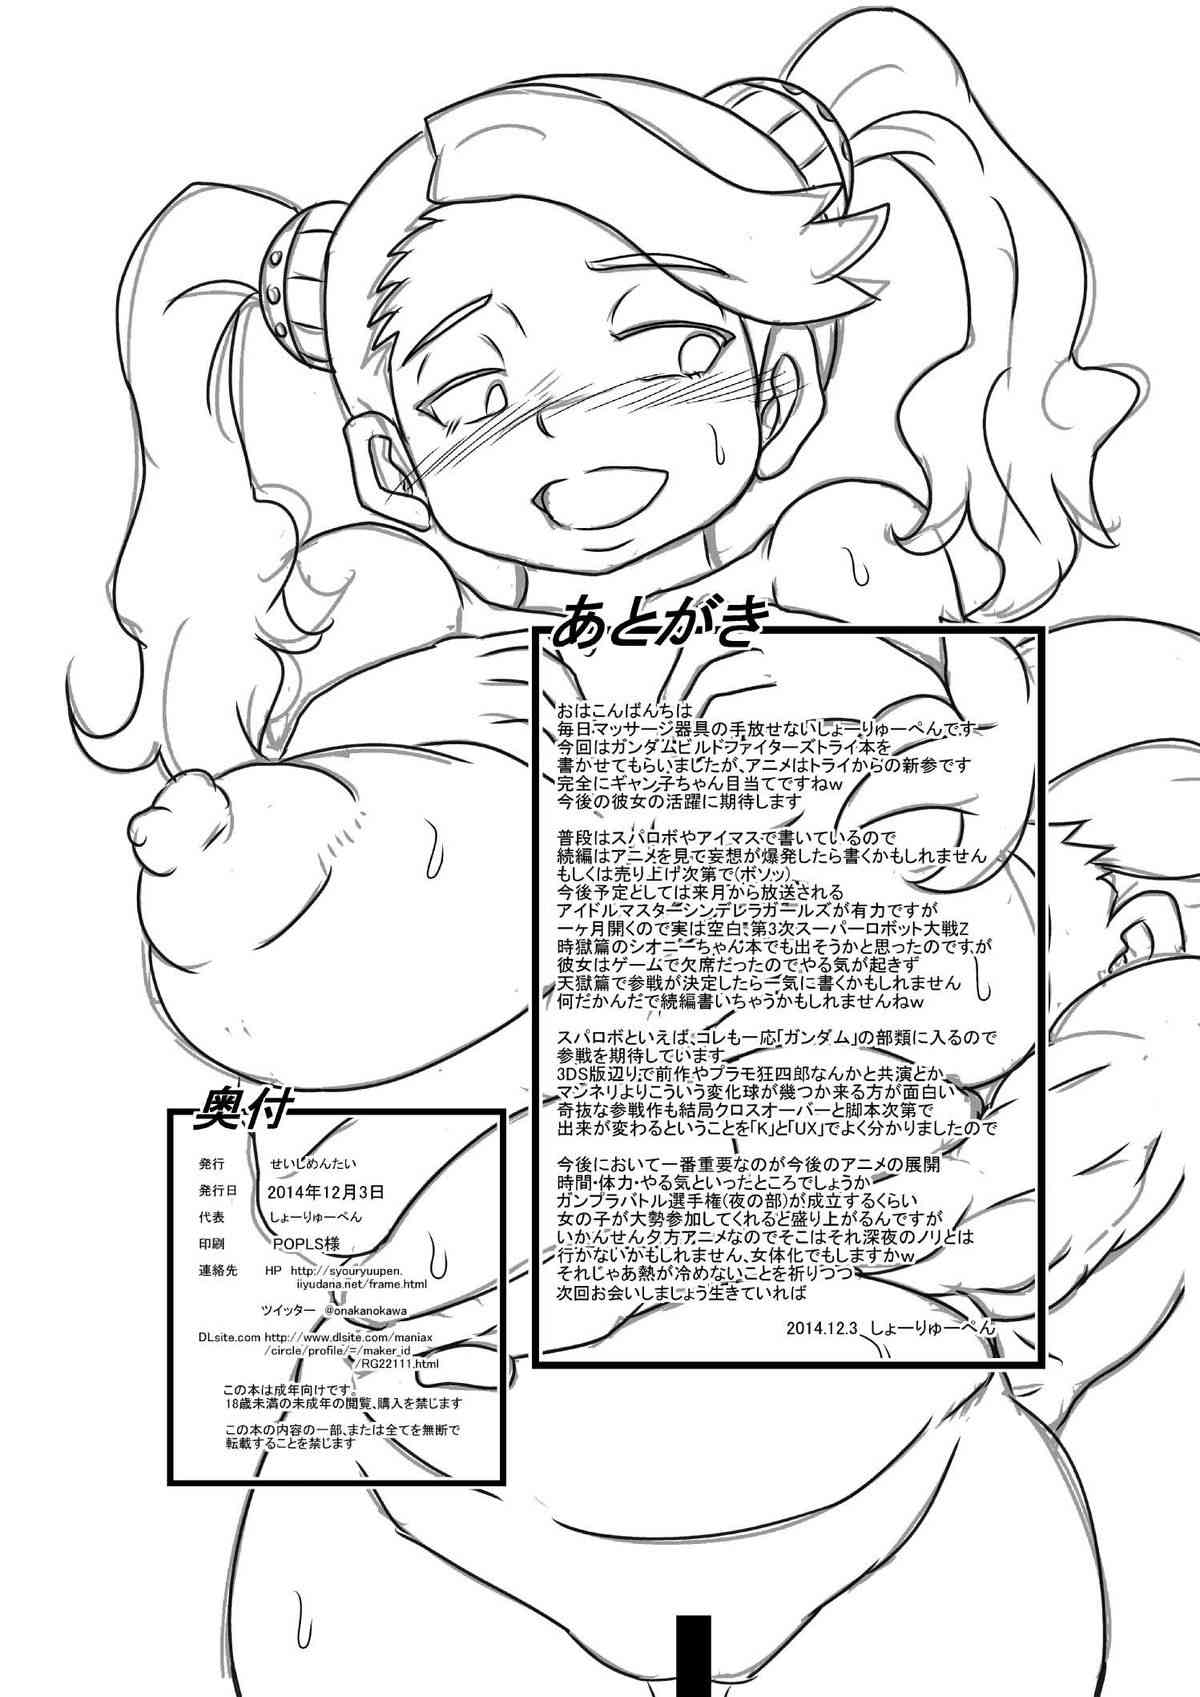 あとがき
おはこんばんちは
毎日マッサージ器具の手放せないしょーりゅーぺんです
今回はガンダムビルドファイターズトライ本を
書かせてもらいましたが、アニメはトライからの新参です
完全にギャン子ちゃん目当てですねｗ
今後の彼女の活躍に期待します
普段はスパロボやアイマスで書いているので
続編はアニメを見て妄想が爆発したら書くかもしれません
もしくは売り上げ次第で(ボソッ)
今後予定としては来月から放送される
アイドルマスターシンデレラガールズが有力ですが
一ヶ月開くので実は空白、第3次スーパーロボット大戦Z
時獄篇のシオニーちゃん本でも出そうかと思ったのですが
彼女はゲームで欠席だったのでやる気が起きず
天獄篇で参戦が決定したら一気に書くかもしれません
何だかんだで続編書いちゃうかもしれませんねｗ
スパロボといえば、コレも一応「ガンダム」の部類に入るので
参戦を期待しています
3DS版辺りで前作やプラモ狂四郎なんかと共演とか
マンネリよりこういう変化球が幾つか来る方が面白い
奇抜な参戦作も結局クロスオーバーと脚本次第で
出来が変わるということを「K」と「UX」でよく分かりましたので
今後において一番重要なのが今後のアニメの展開
時間・体力・やる気といったところでしょうか
ガンプラバトル選手権(夜の部)が成立するくらい
女の子が大勢参加してくれるど盛り上がるんですが
いかんせん夕方アニメなのでそこはそれ深夜のノリとは
行かないかもしれません、女体化でもしますかｗ
それじゃあ熱が冷めないことを祈りつつ
次回お会いしましょう生きていれば
2014.12.3 しょーりゅーぺん
奥付
発行 せいじめんたい
発行日 2014年12月3日
代表 しょーりゅーぺん
印刷 POPLS様
連絡先 HP http://syouryuupen.
iiyudana.net/frame.html
ツイッター @onakanokawa
DLsite.com http://www.dlsite.com/maniax
/circle/profile/=/maker_id
/RG22111.html
この本は成年向けです。
18歳未満の未成年の閲覧、購入を禁じます
この本の内容の一部、または全てを無断で
転載することを禁じます